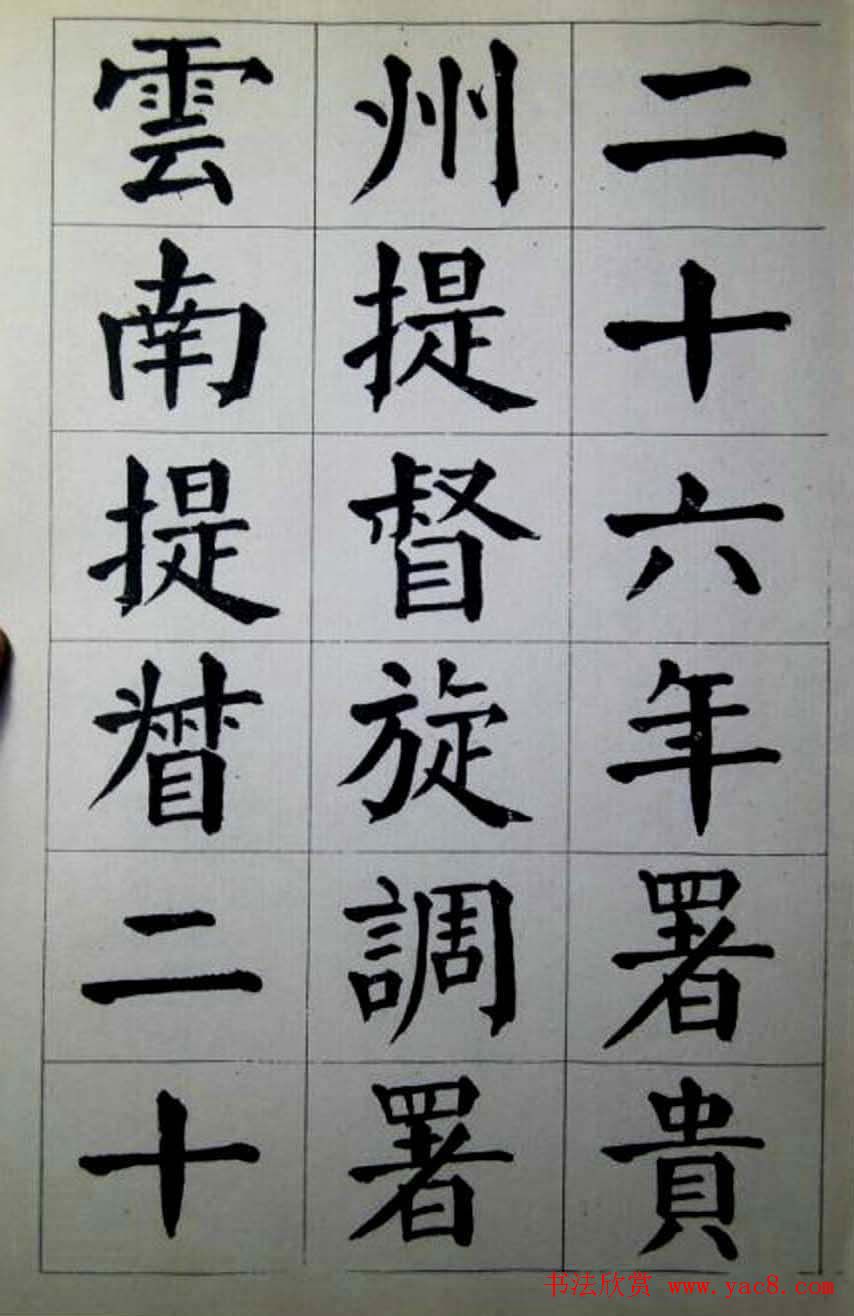 二十六年署貴
州提督旋調署
雲南提督二十
书法欣赏 www.yac8.com